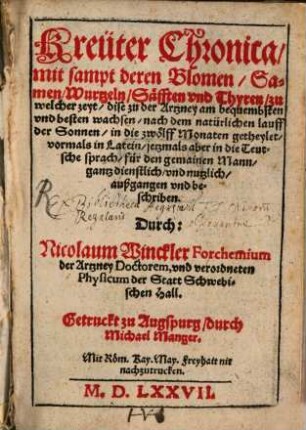 Kreüter Chronica/
mit sampt deren Blomen/ Sa-
men/ Wurtzeln/ Säfften vnd Thyren/ zu
welcher zeyt/ dise zu der Artzney am bequembsten
vnd besten wachsen/ nach dem natürlichen lauff
der Sonnen/ in die zwölff Monaten getheylet/
vormals in Latein/ jetzmals aber in die Teut-
sche sprach/ für den gemainen Mann/
gantz dienstlich/ vnd nutzlich/
außgangen vnd be-
schriben.
Durch:
Nicolaum Winckler Forchemium
der Artzney Doctorem, vnd verordneten
Physicum der Statt Schwebi-
schen Hall.
Getruckt zu Augspurg/ durch
Michael Manger.
Mit Röm. Kay. May. Freyhait nit
nachzutrucken.
M. D. LXXVII.